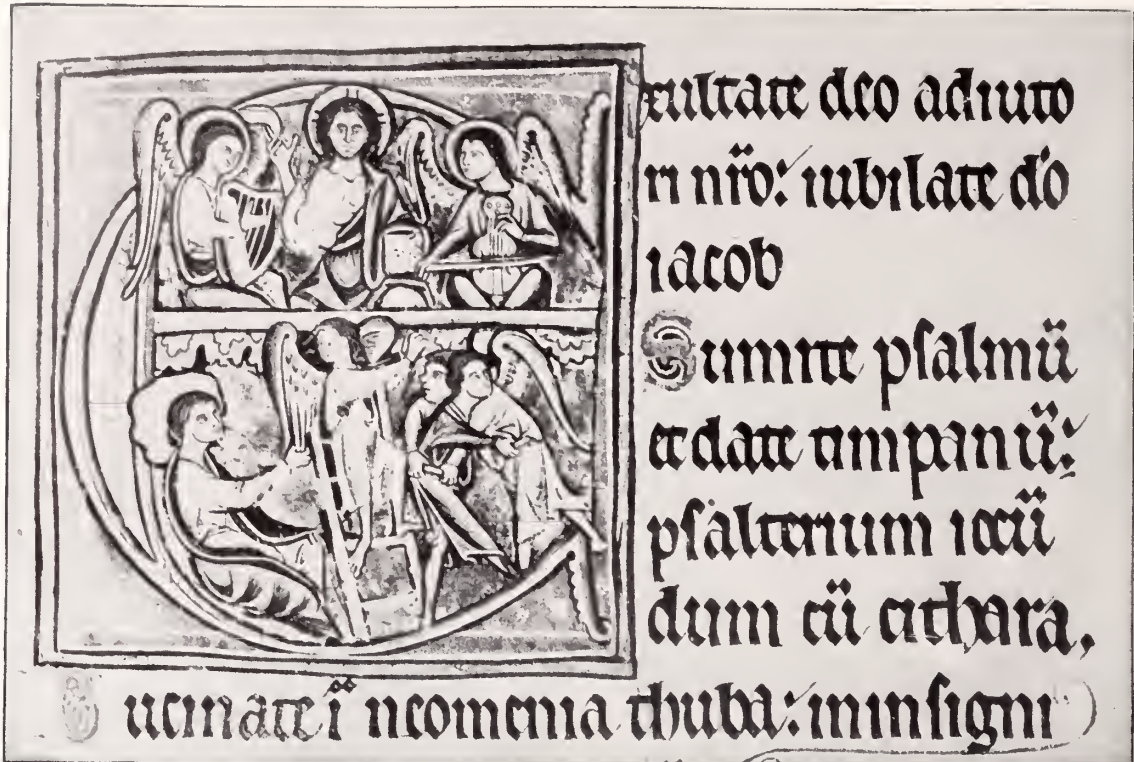 Exultate deo adiuto
ri nr̄o: iubilate do
iacob
Sumite psalmū
et date timpanū:
psalterium iocū
dum cū cithara,
Bucinate ī neomenia thuba: in insigni